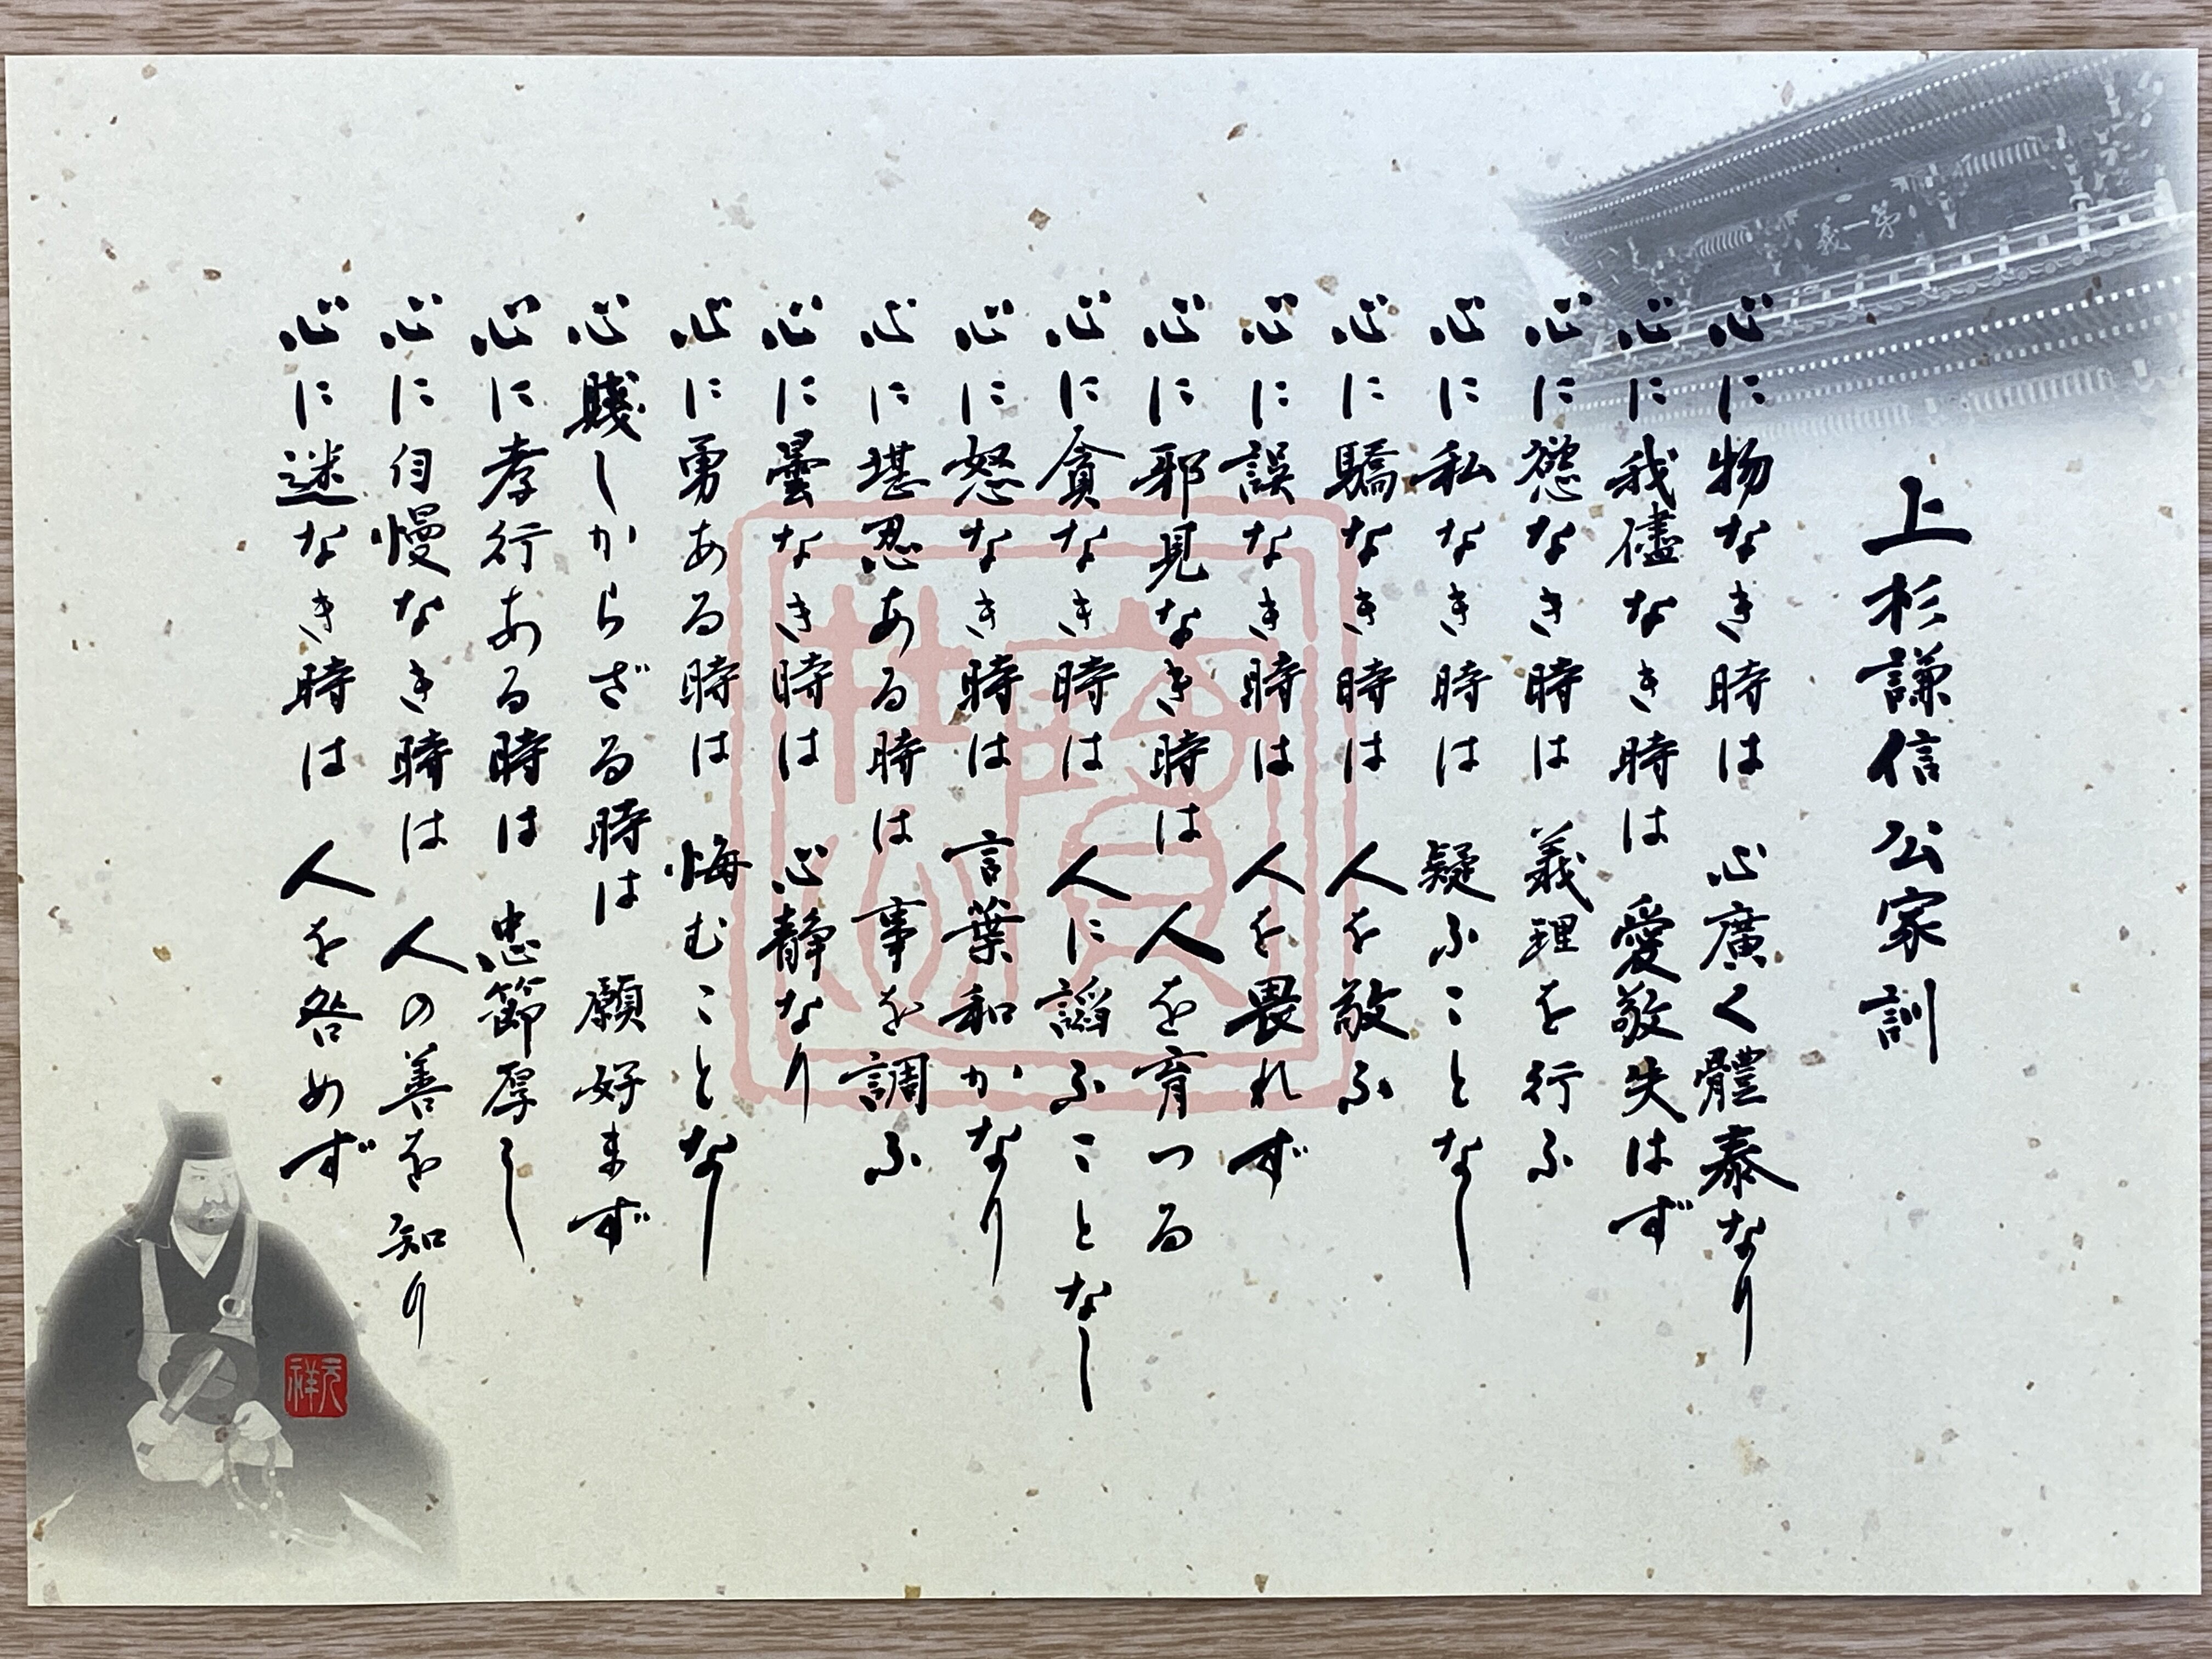 上杉謙信公家訓
心に物なき時は 心廣く體泰なり
心に我儘なき時は 愛敬失はず
心に慾なき時は 義理を行ふ
心に私なき時は 疑ふことなし
心に驕なき時は 人を敬ふ
心に誤なき時は 人を畏れず
心に邪見なき時は 人を育つる
心に貪なき時は 人に謟ふことなし
心に怒なき時は 言葉和かなり
心に堪忍ある時は 事を調ふ
心に曇なき時は 心静なり
心に勇ある時は 悔むことなし
心賤しからざる時は 願好まず
心に孝行ある時は 忠節厚し
心に自慢なき時は 人の善を知り
心に迷なき時は 人を咎めず
第一義
元祥